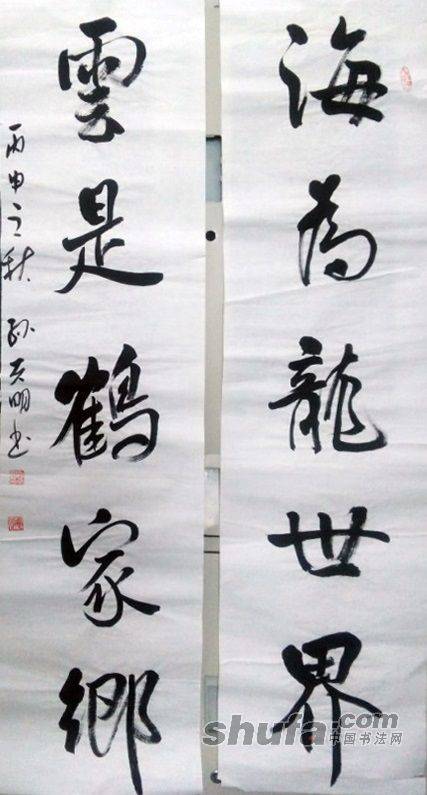 海為龍世界
雲是鶴家鄉
丙申之秋 孙天明书
shufa.com
中国书法网